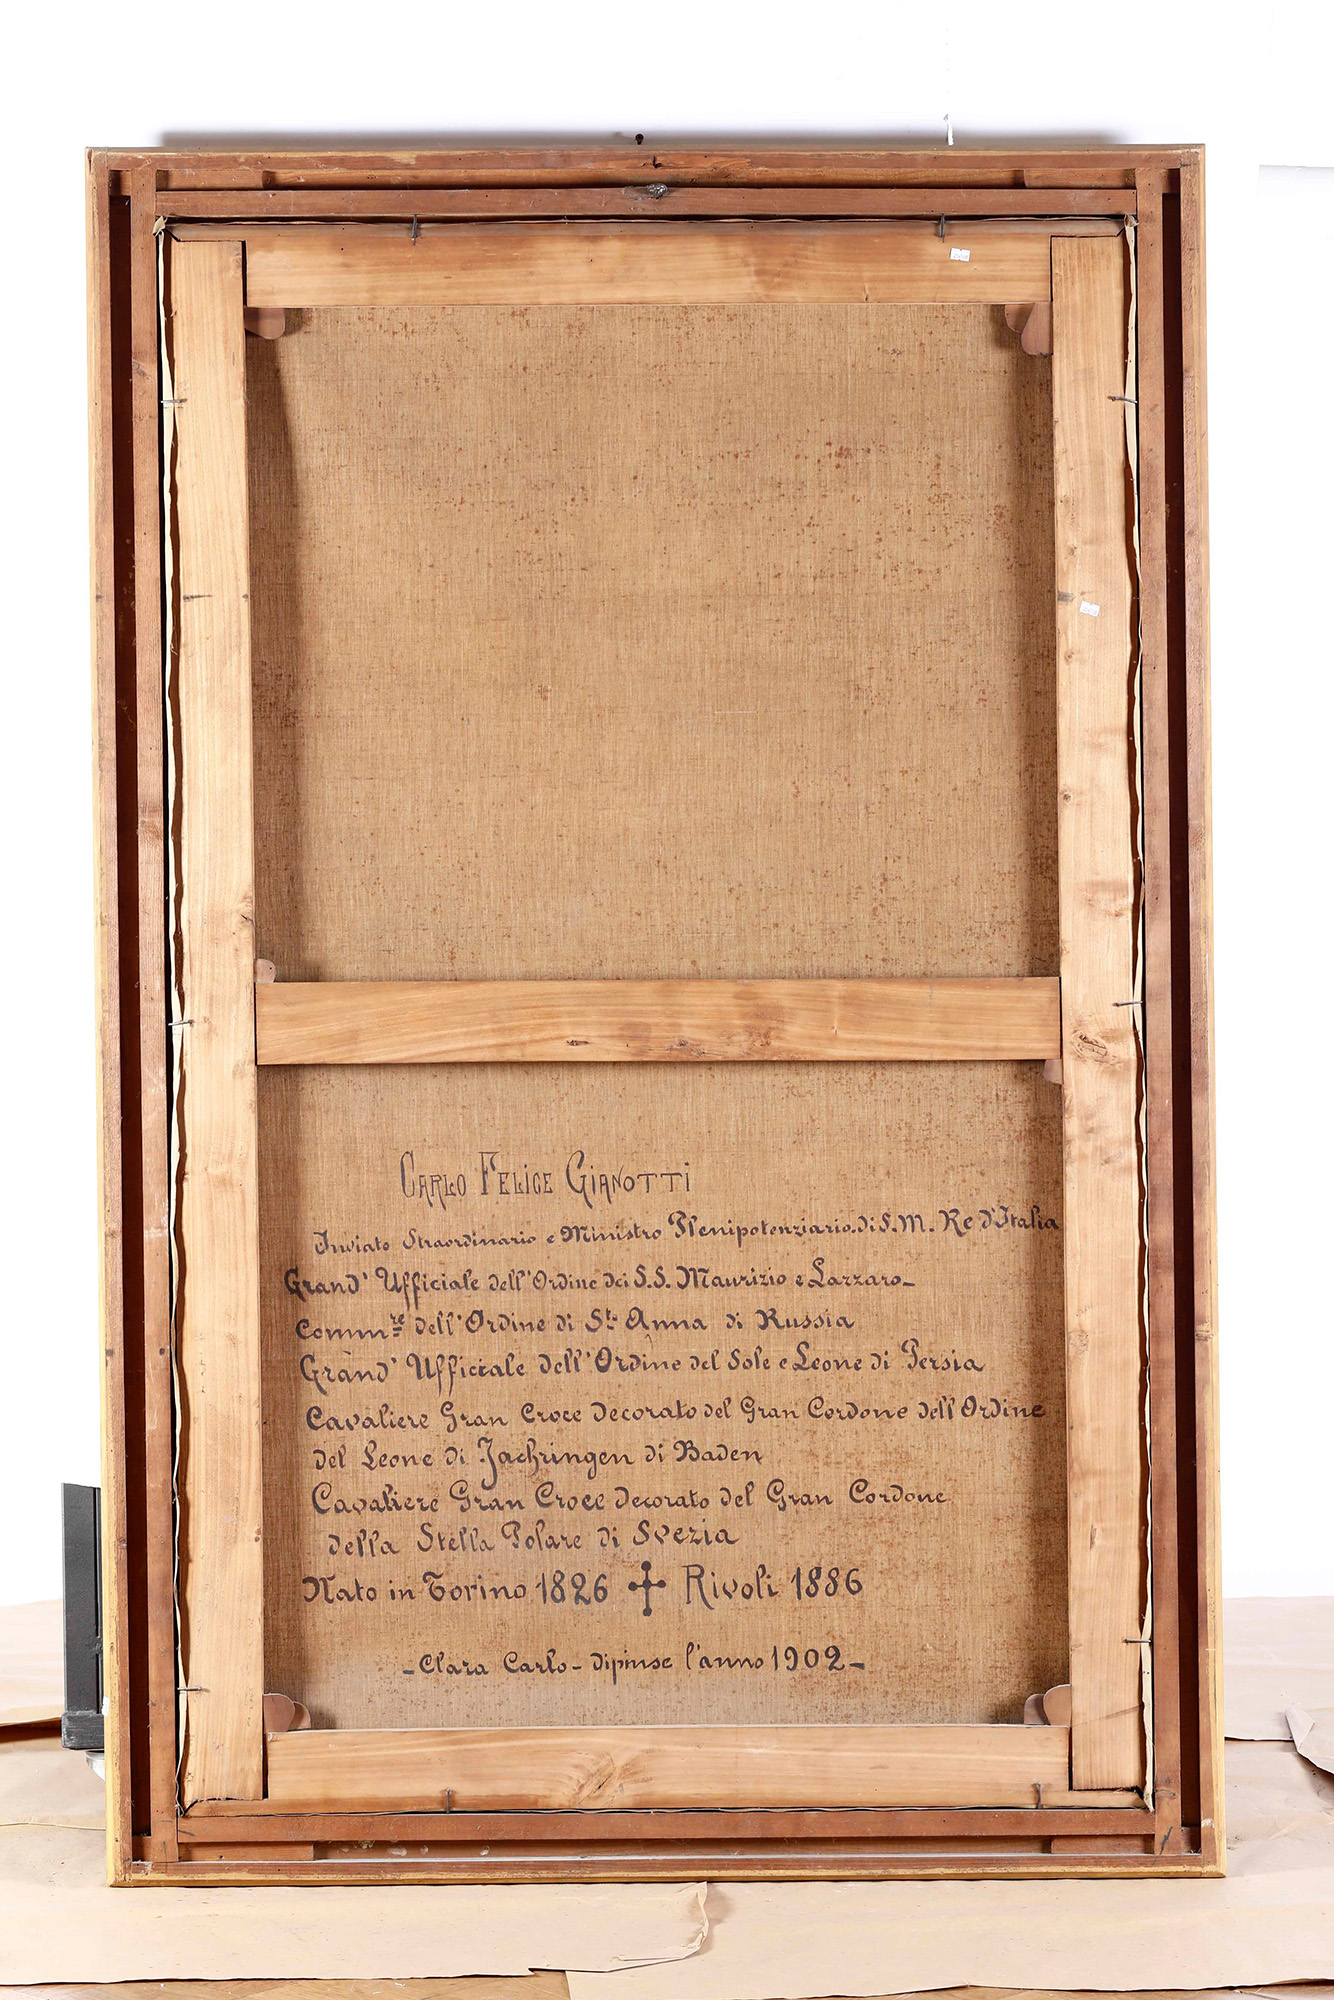 CARLO FELICE GIANOTTI
Inviato Straordinario e Ministro Plenipotenziario di S. M. Re d'Italia
Grand' Ufficiale dell'Ordine dei S.S. Maurizio e Lazzaro-
Comm.re dell'Ordine di St. Anna di Russia
Grand' Ufficiale dell'Ordine del Sole e Leone di Persia
Cavaliere Gran Croce decorato del Gran Cordone dell'Ordine
del Leone di Zachringen di Baden
Cavaliere Gran Croce decorato del Gran Cordone
della Stella Polare di Svezia
Nato in Torino 1826 ✝ Rivoli 1886
-Clara Carlo- dipinse l'anno 1902-